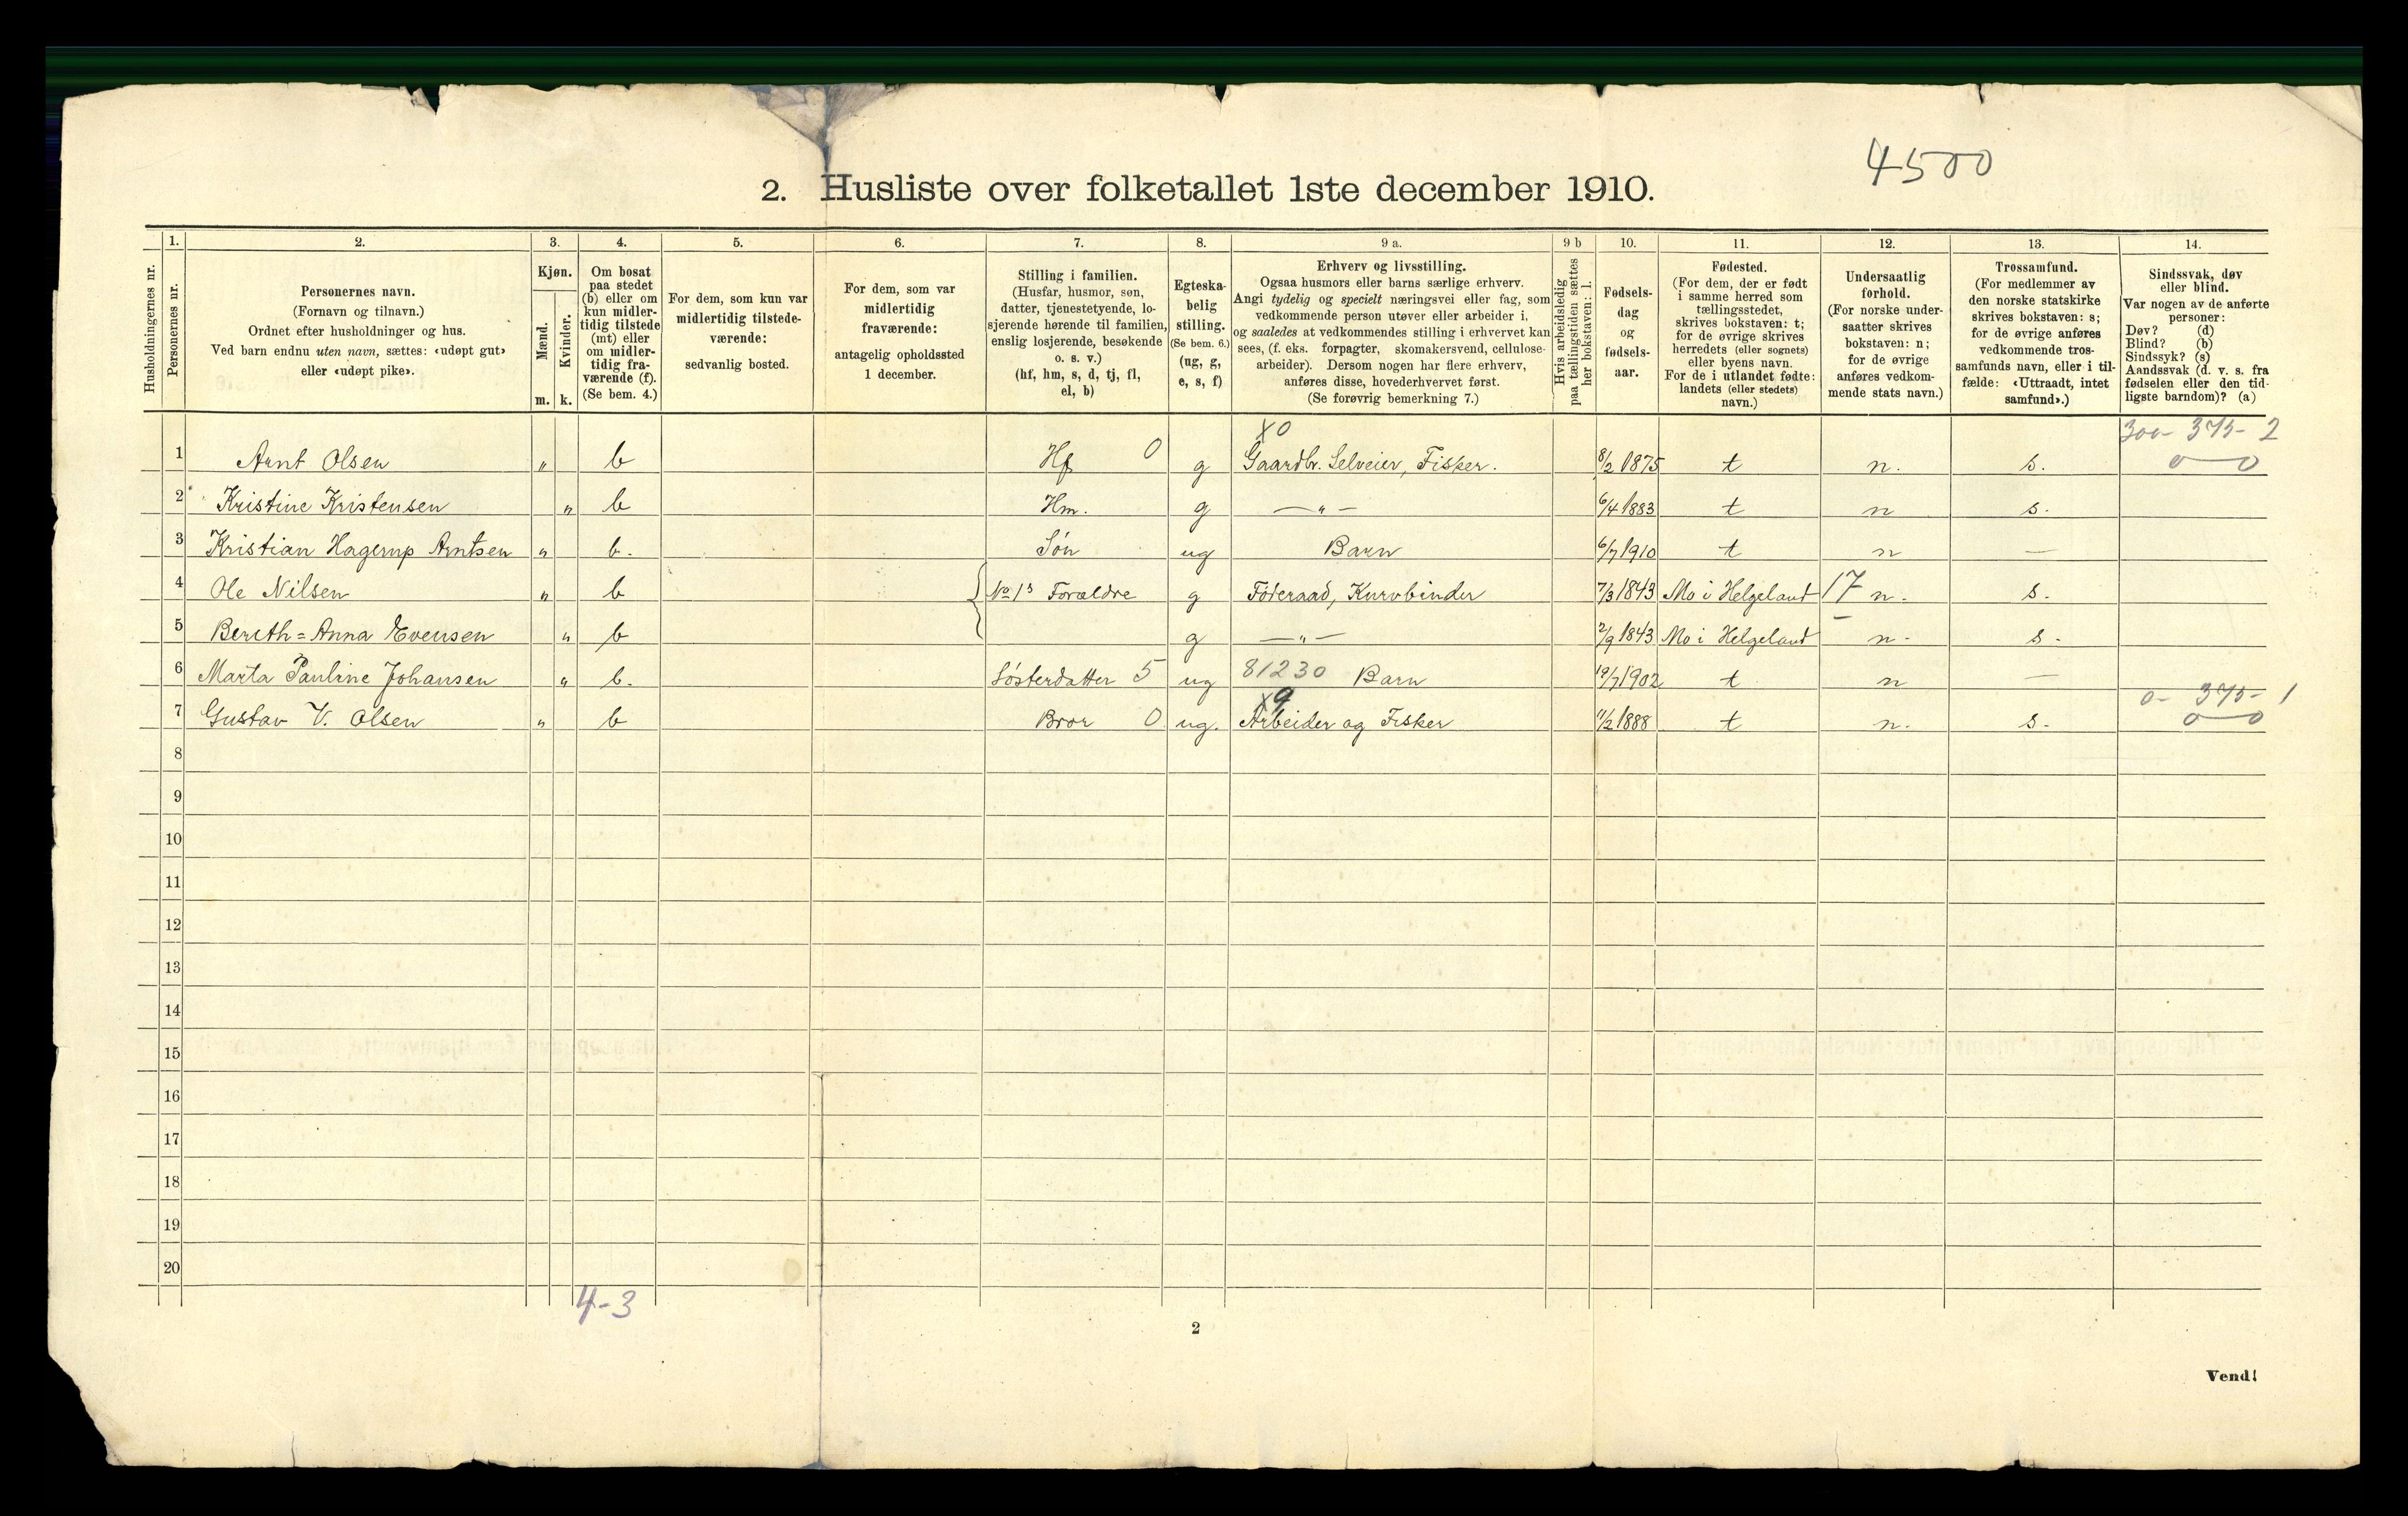 4500
2. Husliste over folketallet 1ste december 1910.
Husholdningernes nr.
1.
Personernes nr.
2.
Personernes navn.
(Fornavn og tilnavn.)
Ordnet efter husholdninger og hus.
Ved barn endnu uten navn, sættes: «udøpt gut»
eller «udøpt pike».
3.
Kjøn.
Mænd.
Kvinder.
m. k.
4.
Om bosat
paa stedet
(b) eller om
kun midler-
tidig tilstede
(mt) eller
om midler-
tidig fra-
værende (f).
(Se bem. 4.)
5.
For dem, som kun var
midlertidig tilstede-
værende:
sedvanlig bosted.
6.
For dem, som var
midlertidig
fraværende:
antagelig opholdssted
1 december.
7.
Stilling i familien.
(Husfar, husmor, søn,
datter, tjenestetyende, lo-
sjerende hørende til familien,
enslig losjerende, besøkende
o. s. v.)
(hf, hm, s, d, tj, fl,
el, b)
8.
Egteska-
belig
stilling.
(Se bem. 6.)
(ug, g,
e, s, f)
9 a.
Erhverv og livsstilling.
Ogsaa husmors eller barns særlige erhverv.
Angi tydelig og specielt næringsvei eller fag, som
vedkommende person utøver eller arbeider i,
og saaledes at vedkommendes stilling i erhvervet kan
sees, (f. eks. forpagter, skomakersvend, cellulose-
arbeider). Dersom nogen har flere erhverv,
anføres disse, hovederhvervet først.
(Se forøvrig bemerkning 7.)
9 b
Hvis arbeidsledig
paa tællingstiden sættes
her bokstaven: l.
10.
Fødsels-
dag
og
fødsels-
aar.
11.
Fødested.
(For dem, der er født
i samme herred som
tællingsstedet,
skrives bokstaven: t;
for de øvrige skrives
herredets (eller sognets)
eller byens navn.
For de i utlandet fødte:
landets (eller stedets)
navn.)
12.
Undersaatlig
forhold.
(For norske under-
saatter skrives
bokstaven: n;
for de øvrige
anføres vedkom-
mende stats navn.)
13.
Trossamfund.
(For medlemmer av
den norske statskirke
skrives bokstaven: s;
for de øvrige anføres
vedkommende tros-
samfunds navn, eller i til-
fælde: «Uttraadt, intet
samfund».)
14.
Sindssvak, døv
eller blind.
Var nogen av de anførte
personer:
Døv? (d)
Blind? (b)
Sindssyk? (s)
Aandssvak (d. v. s. fra
fødselen eller den tid-
ligste barndom)? (a)
x0 300- 375- 2
1 Arnt Olsen " b Hf 0 g Gaardbr. Selveier, Fisker. 8/2 1875 t n. s. 0—0
2 Kristine Kristensen " b Hm. g —"— 6/4 1883 t n s.
3 Kristian Hagerup Arntsen " b. Søn ug Barn 6/7 1910 t n —
4 Ole Nilsen " b { No 1s Forældre g Føderaad, Kurvbinder 7/3 1843 Mo i Helgeland 17 n. s.
5 Bereth=Anna Evensen " b g —"— 2/9 1843 Mo i Helgeland — n. s.
6 Marta Pauline Johansen " b. Søsterdatter 5 ug 81230 Barn 19/7 1902 t n —
x9 0- 375- 1
7 Gustav V. Olsen " b Bror 0 ug. Arbeider og Fisker 11/2 1888 t n. s. 0—0
8
9
10
11
12
13
14
15
16
17
18
19
20
4-3
2
Vend!